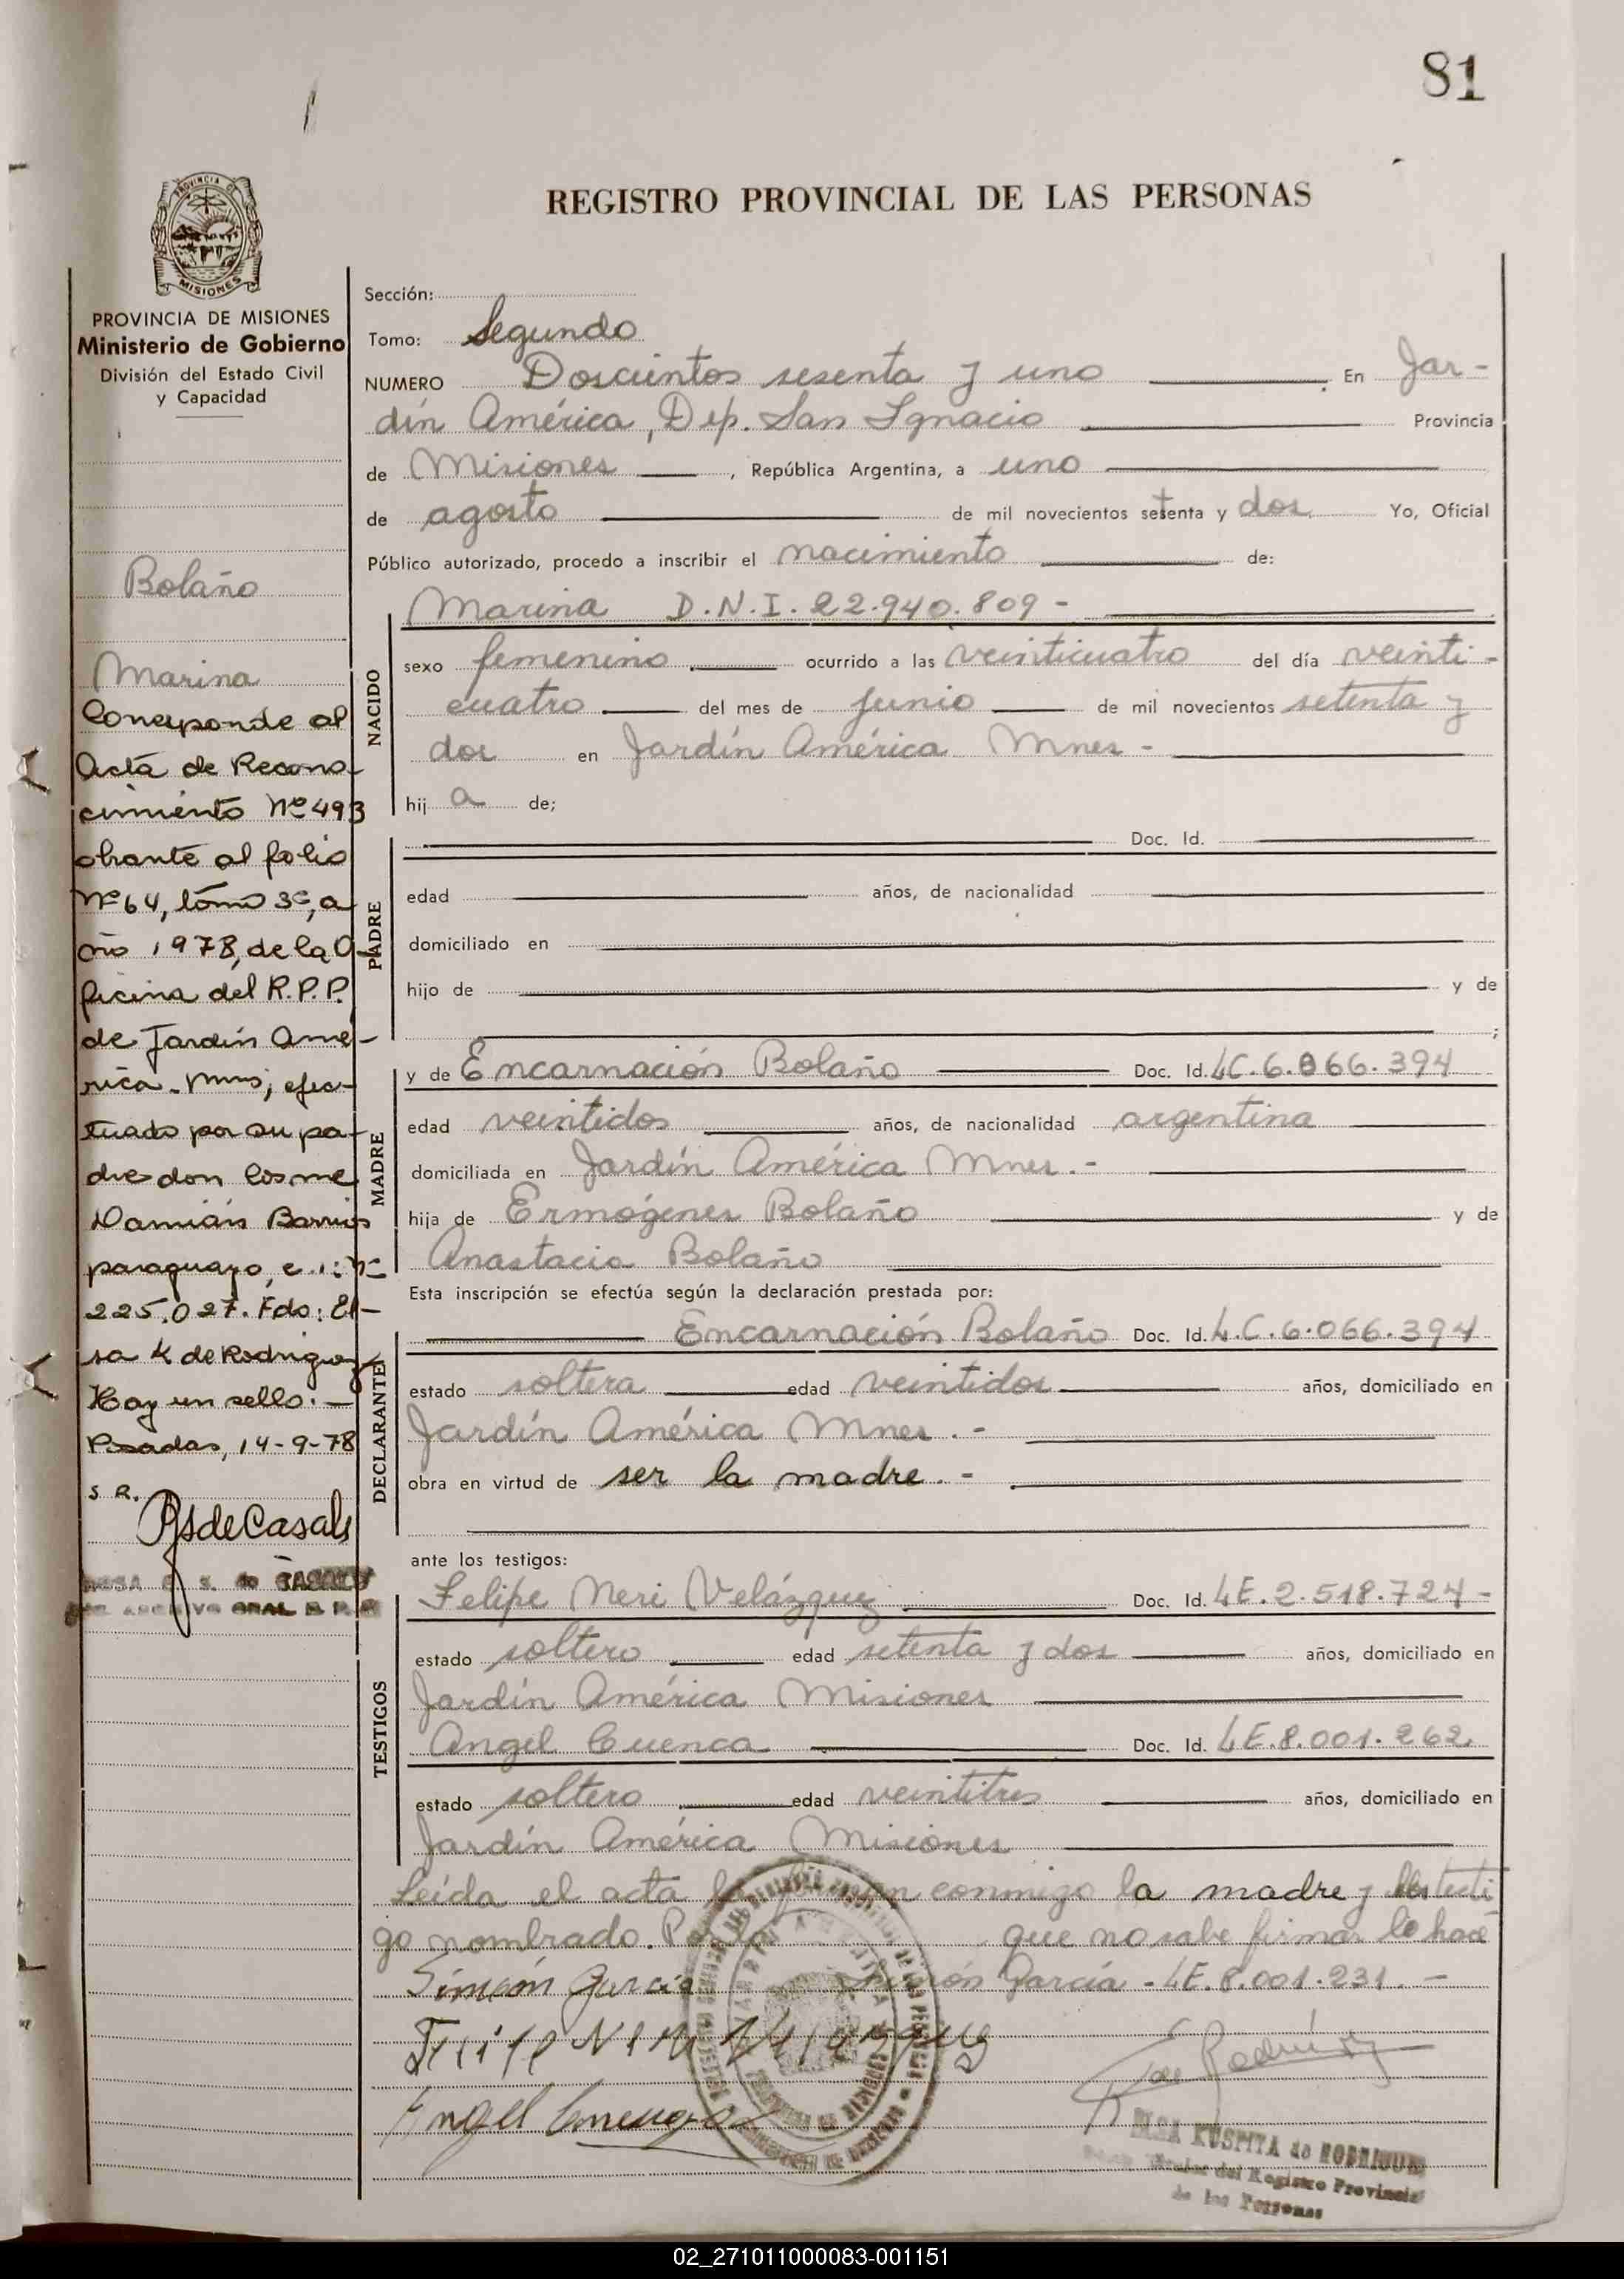 81
REGISTRO PROVINCIAL DE LAS PERSONAS
PROVINCIA DE MISIONES
PROVINCIA DE MISIONES
Ministerio de Gobierno
División del Estado Civil
y Capacidad
Bolaño
Marina
Corresponde al
Acta de Recono-
cimiento Nº 493
obrante al folio
Nº 64, tomo 3º, a-
ño 1978, de la O-
ficina del R.P.P.
de Jardín Amé-
rica - Mnes; efec-
tuado por su pa-
dre don Cosme
Damián Barrios
paraguayo, c.i. Nº
225.027. Fdo: El-
sa K de Rodriguez
Hay un sello. -
Posadas, 14-9-78
S. R.
RSdeCasals
Sección:
Tomo: Segundo
NUMERO Doscientos sesenta y uno En Jar-
dín América, Dep. San Ignacio Provincia
de Misiones, República Argentina, a uno
de agosto de mil novecientos setenta y dos Yo, Oficial
Público autorizado, procedo a inscribir el nacimiento de:
Marina D.N.I. 22.940.809 -
NACIDO
sexo femenino ocurrido a las veinticuatro del día veinti-
cuatro del mes de junio de mil novecientos setenta y
dos en Jardín América Mnes -
hij a de;
PADRE
Doc. Id.
edad años, de nacionalidad
domiciliado en
hijo de y de
;
MADRE
y de Encarnación Bolaño Doc. Id. LC. 6.066.394
edad veintidos años, de nacionalidad argentina
domiciliada en Jardín América Mnes. -
hija de Ermógenes Bolaño y de
Anastacia Bolaño
Esta inscripción se efectúa según la declaración prestada por:
DECLARANTE
Encarnación Bolaño Doc. Id. L.C. 6.066.394
estado soltera edad veintidos años, domiciliado en
Jardín América Mnes. -
obra en virtud de ser la madre. -
ante los testigos:
TESTIGOS
Felipe Neri Velázquez Doc. Id. LE. 2.518.724 -
estado soltero edad setenta y dos años, domiciliado en
Jardín América Misiones
Angel Cuenca Doc. Id. LE. 8.001.262
estado soltero edad veintitres años, domiciliado en
Jardín América Misiones
Leída el acta la conmigo la madre y los testi
go nombrado. Por la que no sabe firmar lo hace
Simeón García Simeón García - LE. 8.001.231. -
Angel Cuenca
K de Rodríguez
ELSA KUSPITA de RODRIGUEZ
Titular del Registro Provincial
de las Personas
02_271011000083-001151